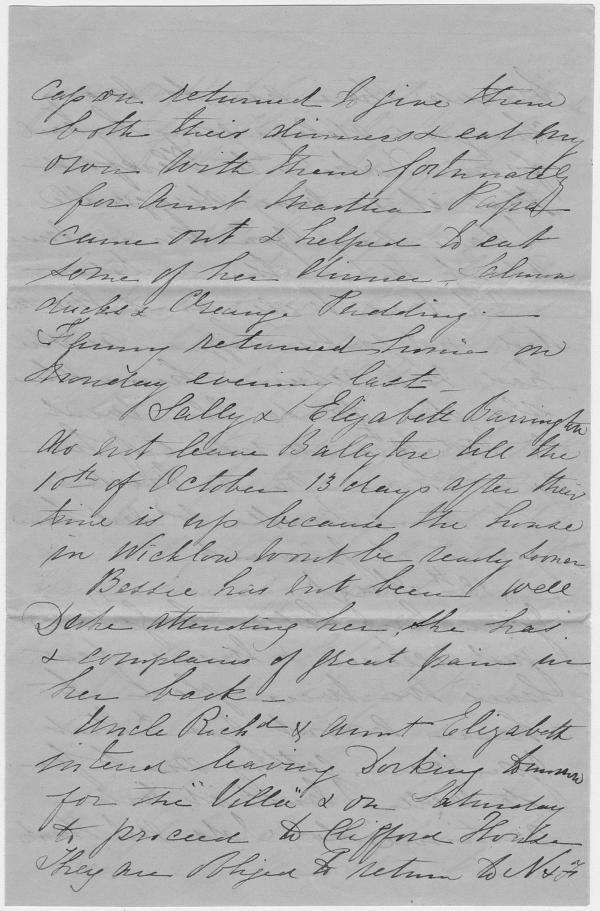 returned to give them
both their dinners & eat my
own with them fortunately
for Aunt Martha Papa
came out & helped to eat
some of her dinner. Salmon
ducks & Orange Pudding. —
Fanny returned home on
Monday evening last —
Sally & Elizabeth Barrington
do not leave Ballytore till the
10th of October 13 days after their
time is up because the house
in Wicklow wont be ready sooner
Bessie has not been well
attending her, she has
& complains of great pain in
her back —
Uncle Richd & Aunt Elizabeth
intend leaving Dorking tomorrow
for the "Villa" & on Saturday
to proceed to Clifford House
They are obliged to return to